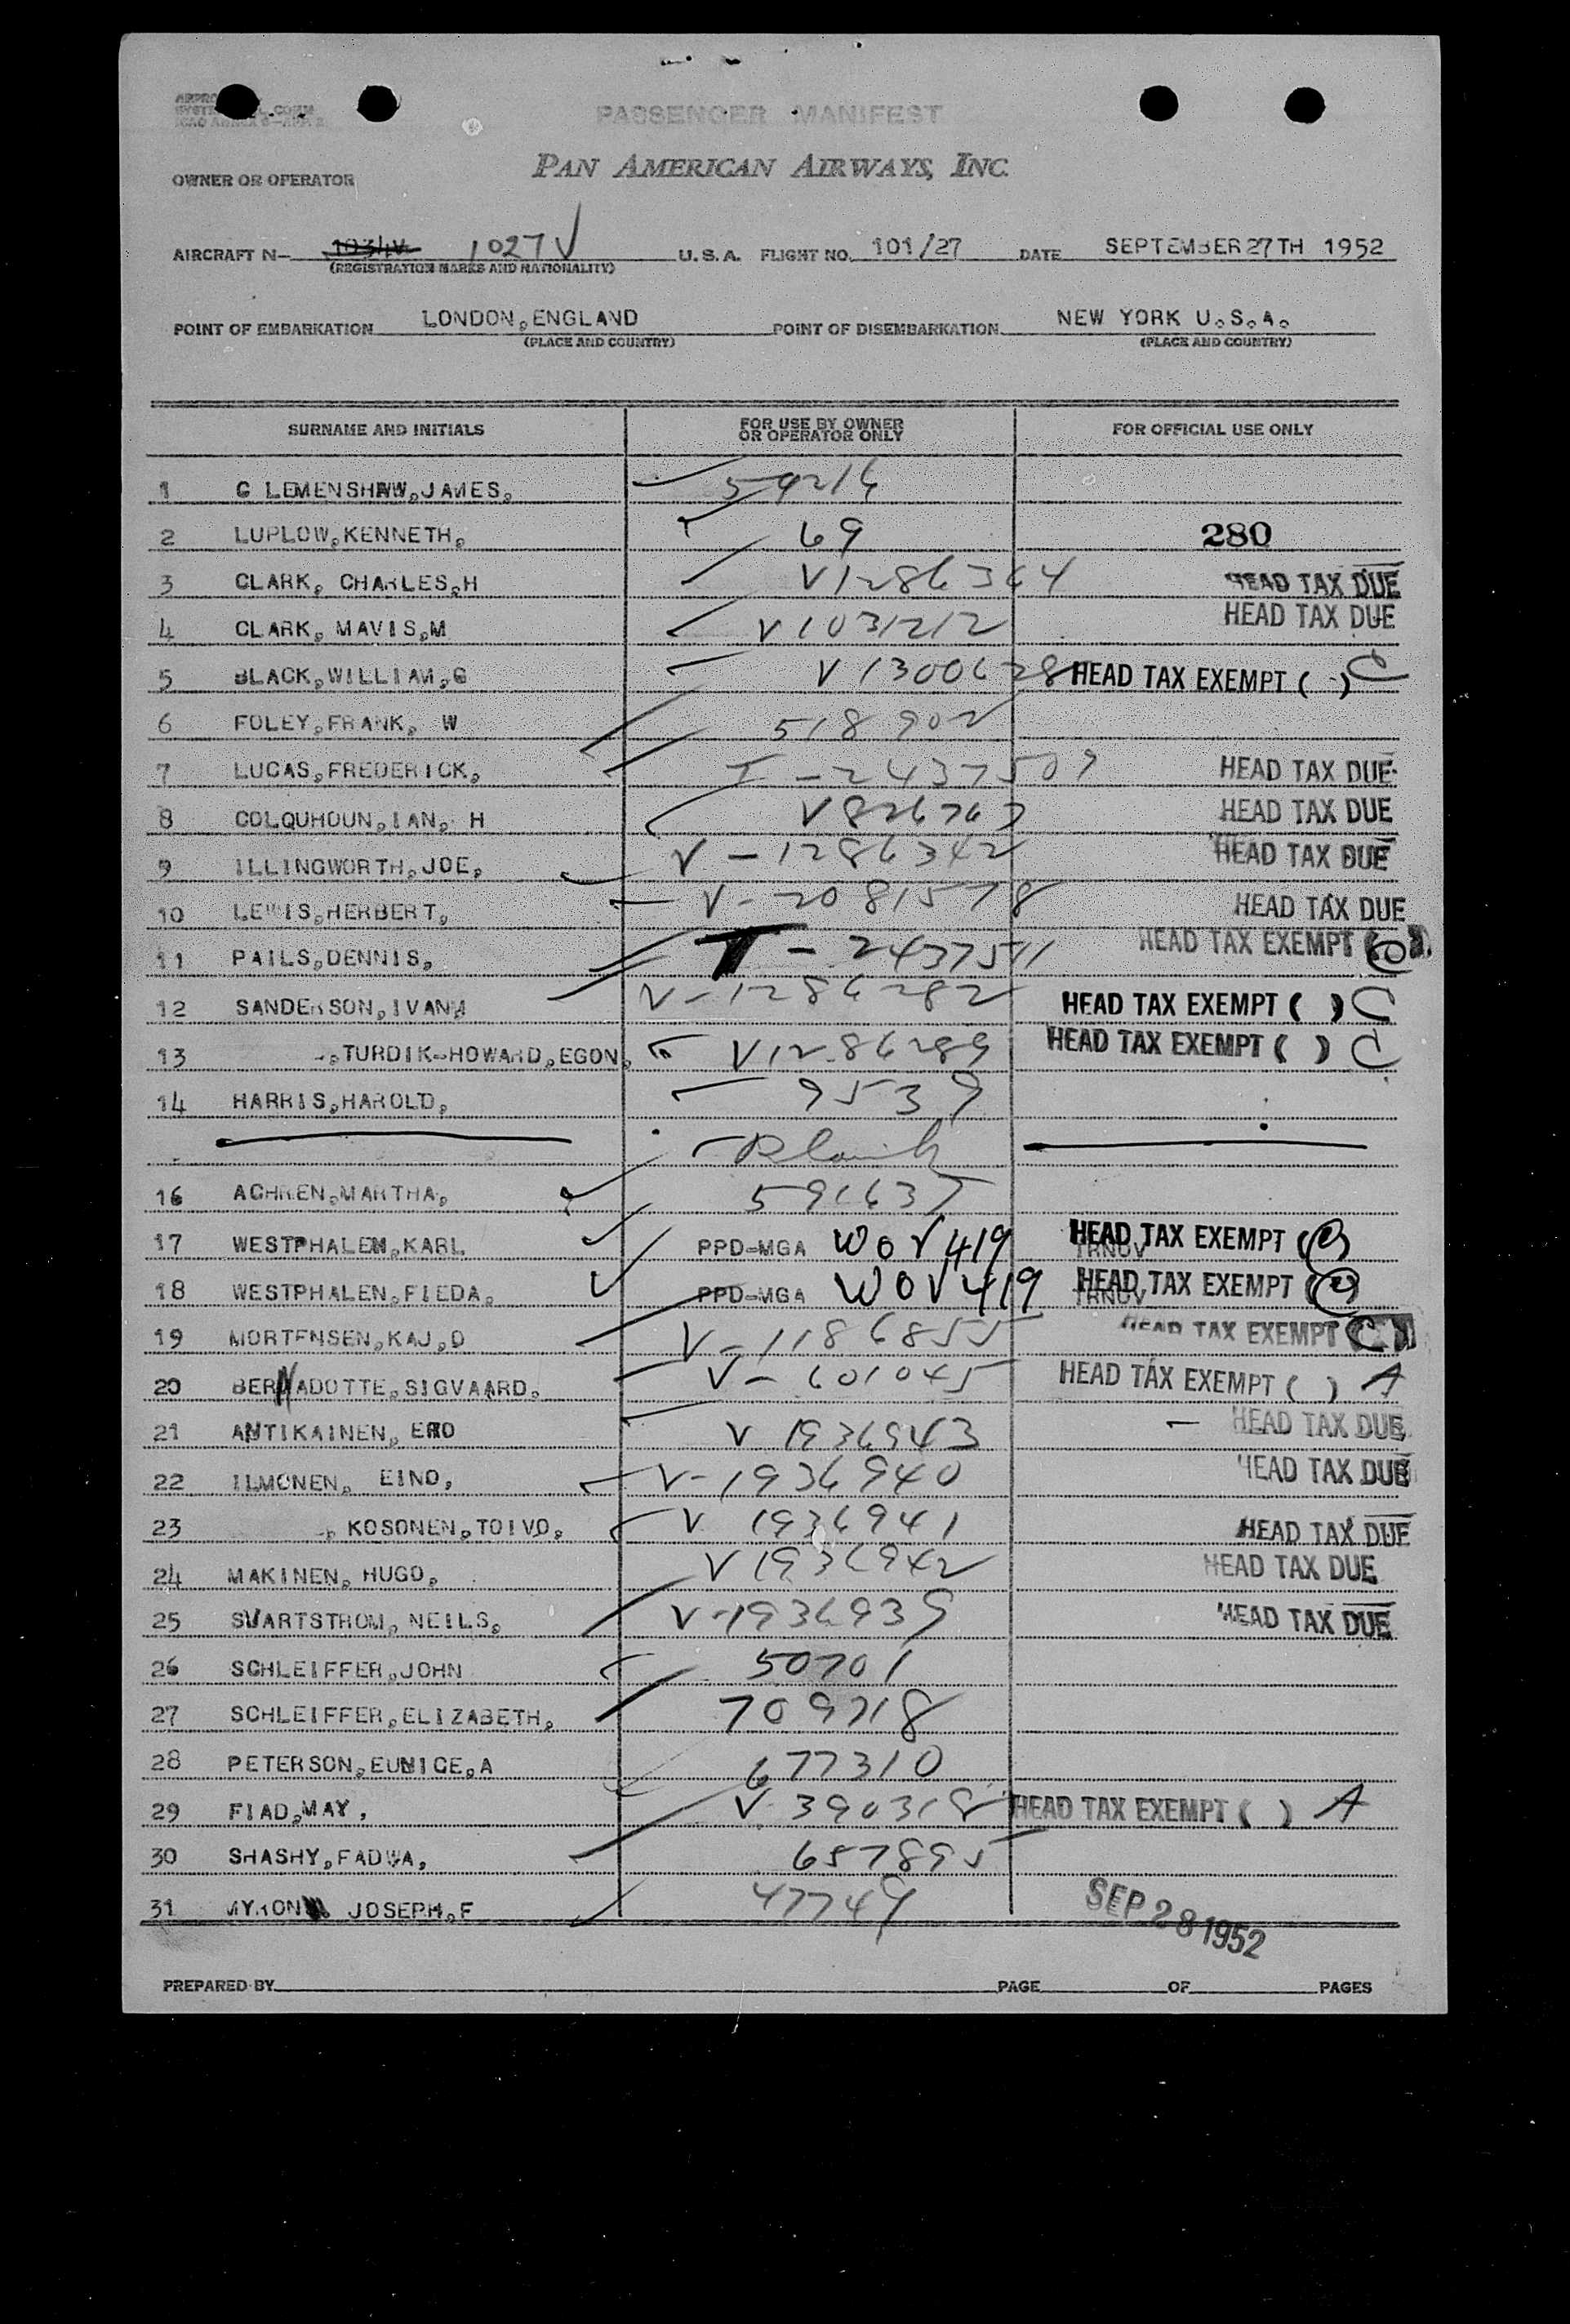 PASSENGER MANIFEST
PAN AMERICAN AIRWAYS, INC.
OWNER OR OPERATOR
AIRCRAFT N- 1027V U.S.A. FLIGHT NO. 101/27 DATE SEPTEMBER 27TH 1952
(REGISTRATION MARKS AND NATIONALITY)
POINT OF EMBARKATION LONDON, ENGLAND POINT OF DISEMBARKATION NEW YORK U.S.A.
(PLACE AND COUNTRY) (PLACE AND COUNTRY)
SURNAME AND INITIALS FOR USE BY OWNER OR OPERATOR ONLY FOR OFFICIAL USE ONLY
1 CLEMENSHAW, JAMES, 54216
2 LUPLOW, KENNETH, 69 280
3 CLARK, CHARLES, H V1286364 HEAD TAX DUE
4 CLARK, MAVIS, M V1031212 HEAD TAX DUE
5 BLACK, WILLIAM, G V1300628 HEAD TAX EXEMPT ( ) C
6 FOLEY, FRANK, W 518902
7 LUCAS, FREDERICK, T-2437509 HEAD TAX DUE
8 COLQUHOUN, IAN, H V826763 HEAD TAX DUE
9 ILLINGWORTH, JOE, V-1286342 HEAD TAX DUE
10 LEWIS, HERBERT, V-2081578 HEAD TAX DUE
11 PAILS, DENNIS, T-2437511 HEAD TAX EXEMPT
12 SANDERSON, IVAN V-1286282 HEAD TAX EXEMPT ( ) C
13 -, TURDIK-HOWARD, EGON, V1286289 HEAD TAX EXEMPT ( ) C
14 HARRIS, HAROLD, 9539
Blank
16 ACHREN, MARTHA, 591637
17 WESTPHALEN, KARL PPD-MGA WOV419 HEAD TAX EXEMPT (C)
TRNOV
18 WESTPHALEN, FIEDA, PPD-MGA WOV419 HEAD TAX EXEMPT (C)
TRNOV
19 MORTENSEN, KAJ, O V-1186855 HEAD TAX EXEMPT C
20 BERNADOTTE, SIGVAARD, V-601045 HEAD TAX EXEMPT ( ) A
21 ANTIKAINEN, ERO V 1936943 HEAD TAX DUE
22 ILMONEN, EINO, V-1936940 HEAD TAX DUE
23 -, KOSONEN, TOIVO, V 1936941 HEAD TAX DUE
24 MAKINEN, HUGO, V 1936942 HEAD TAX DUE
25 SVARTSTROM, NEILS, V-1936939 HEAD TAX DUE
26 SCHLEIFFER, JOHN 50701
27 SCHLEIFFER, ELIZABETH, 709718
28 PETERSON, EUNICE, A 677310
29 FIAD, MAY, V 390318 HEAD TAX EXEMPT ( ) A
30 SHASHY, FADWA, 657895
31 MYRON JOSEPH, F 47749
SEP 28 1952
PREPARED BY PAGE OF PAGES